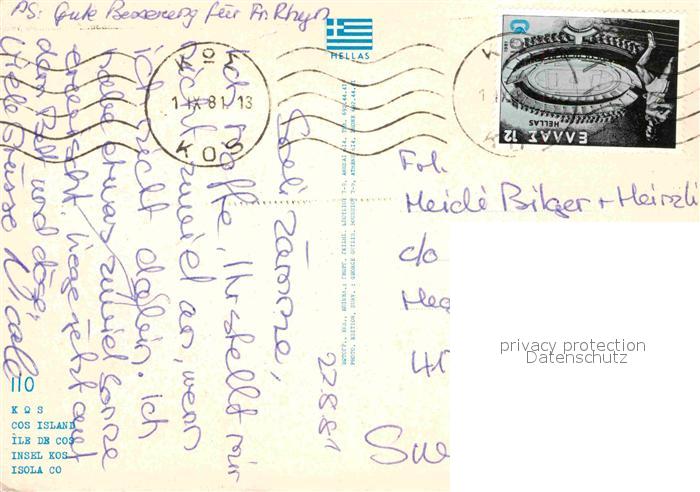 PS: Gute Besserung für Fr. Rhyn
HELLAS
ΚΩΣ
1 IX 81. 13
KOS
ΕΛΛΑΣ 12
HELLAS
27881
Sali zäme,
Ich hoffe, Ihr stellt mir
nicht zuviel an, wenn
ich nicht da bin. Ich
habe etwas zuviel Sonne
erwischt. Liege jetzt auf
dem Bett und döse,
Viele Grüsse Nicole
Frl.
Heidi Bilger + Heinzli
c/o
privacy protection
Datenschutz
110
Κ Ω Σ
COS ISLAND
ÎLE DE COS
INSEL KOS
ISOLA CO